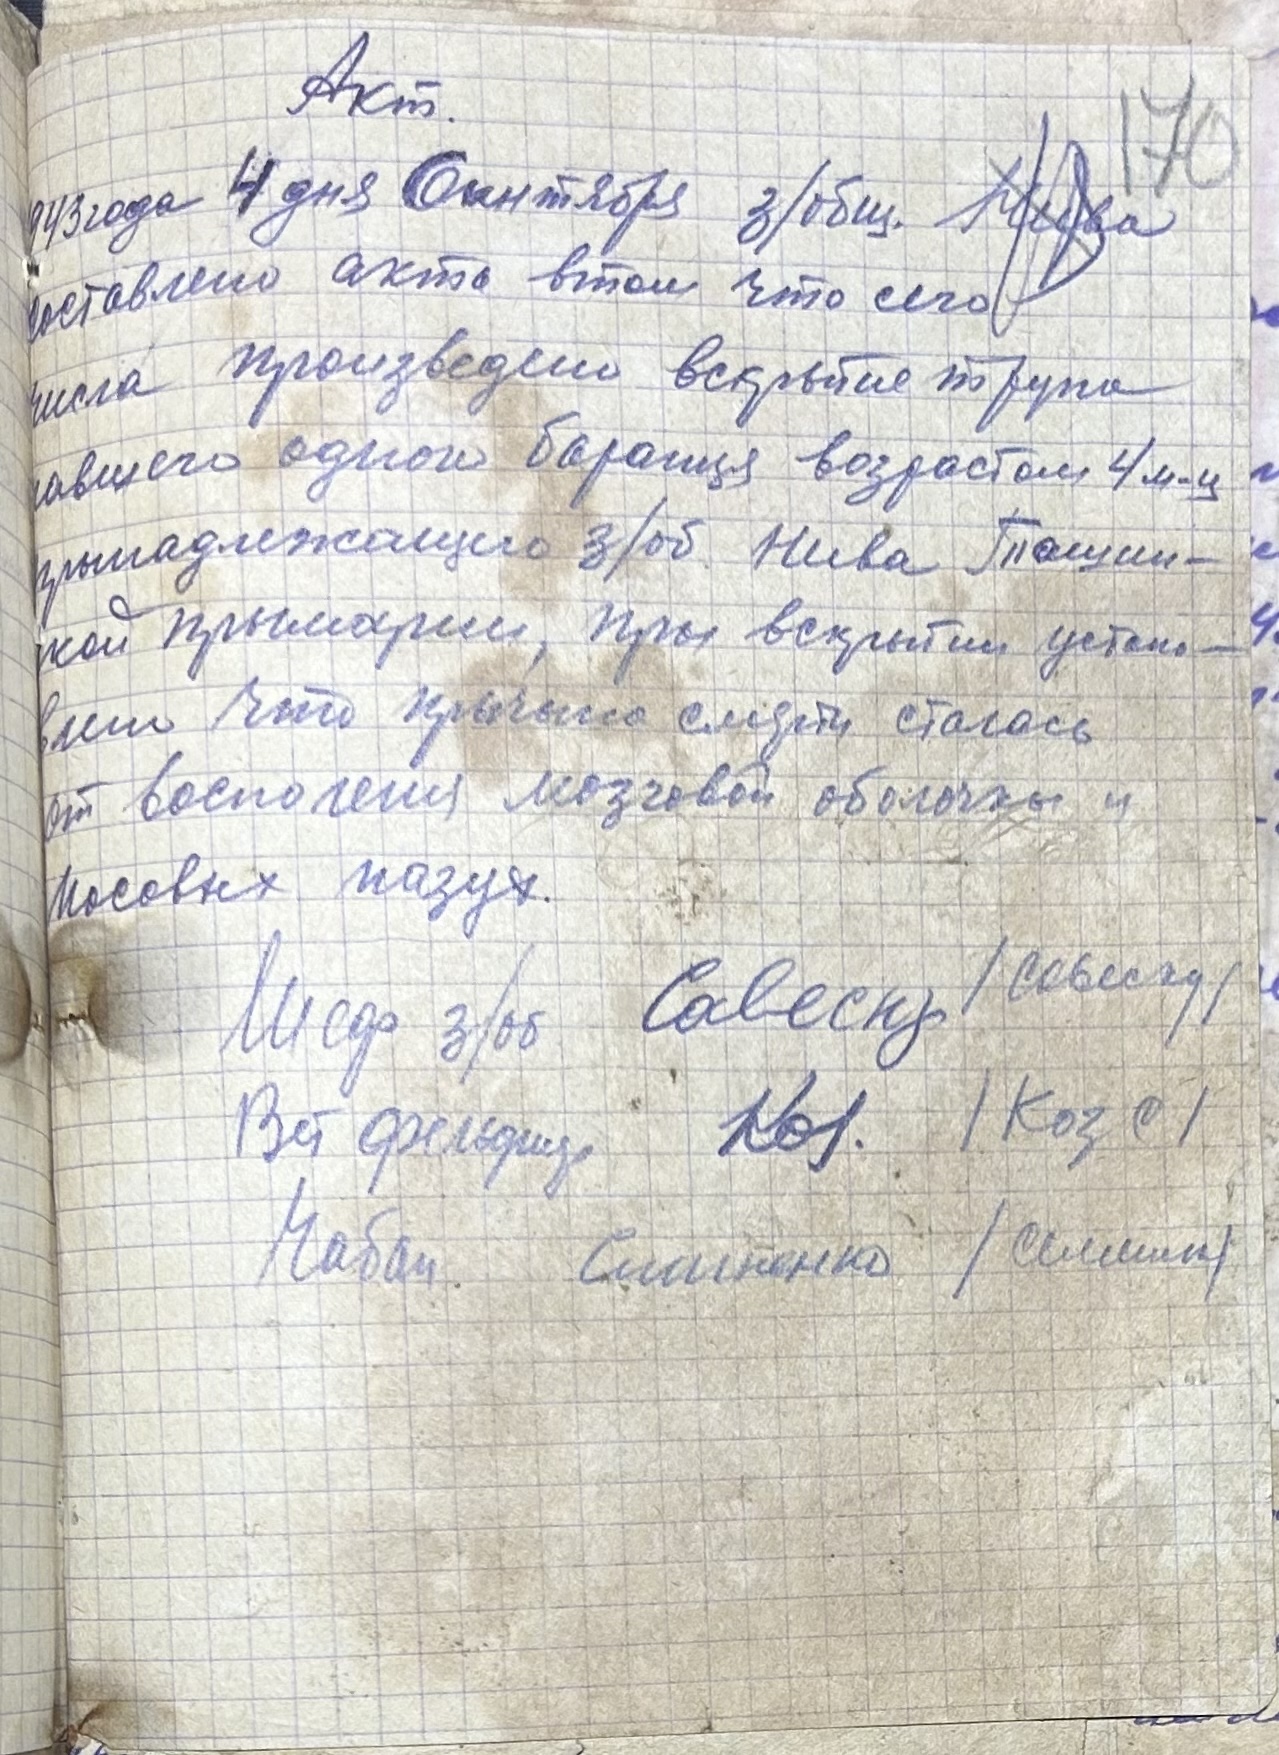 Акт.
170
943 года 4 дня Синтября з/общ. Нива
составлено акта втом что сего
числа произведено вскрытие трупа
павшего одного баранця возрастом 4 м-ц
прынадлежащего з/об. Нива
кой прымарии, пры вскрытии устано-
влено что прычына смерти сталась
от восполения мозговой оболочкы и
носовых пазух.
Шеф з/об Савеску /Савеску/
Вет фельдшер Коз. /Коз С/
Чабан